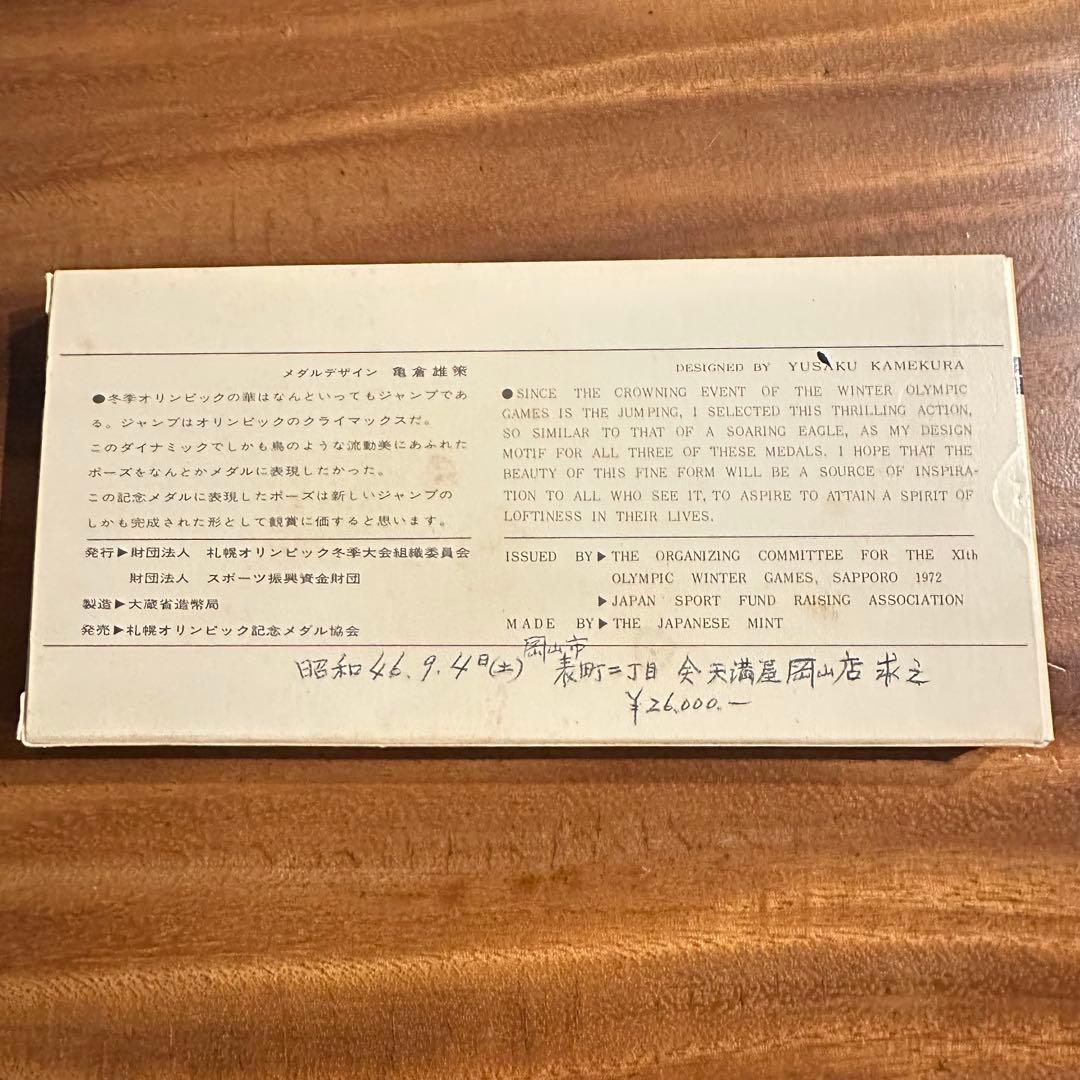 メダルデザイン 亀倉雄策
●冬季オリンピックの華はなんといってもジャンプであ
る。ジャンプはオリンピックのクライマックスだ。
このダイナミックでしかも鳥のような流動美にあふれた
ポーズをなんとかメダルに表現したかった。
この記念メダルに表現したポーズは新しいジャンプの
しかも完成された形として観賞に価すると思います。
発行▶財団法人 札幌オリンピック冬季大会組織委員会
財団法人 スポーツ振興資金財団
製造▶大蔵省造幣局
発売▶札幌オリンピック記念メダル協会
DESIGNED BY YUSAKU KAMEKURA
●SINCE THE CROWNING EVENT OF THE WINTER OLYMPIC
GAMES IS THE JUMPING, I SELECTED THIS THRILLING ACTION,
SO SIMILAR TO THAT OF A SOARING EAGLE, AS MY DESIGN
MOTIF FOR ALL THREE OF THESE MEDALS. I HOPE THAT THE
BEAUTY OF THIS FINE FORM WILL BE A SOURCE OF INSPIRA-
TION TO ALL WHO SEE IT, TO ASPIRE TO ATTAIN A SPIRIT OF
LOFTINESS IN THEIR LIVES.
ISSUED BY▶THE ORGANIZING COMMITTEE FOR THE XIth
OLYMPIC WINTER GAMES, SAPPORO 1972
▶JAPAN SPORT FUND RAISING ASSOCIATION
MADE BY▶THE JAPANESE MINT
岡山市
昭和46.9.4日(土) 表町二丁目 天満屋岡山店 求之
¥26,000.-